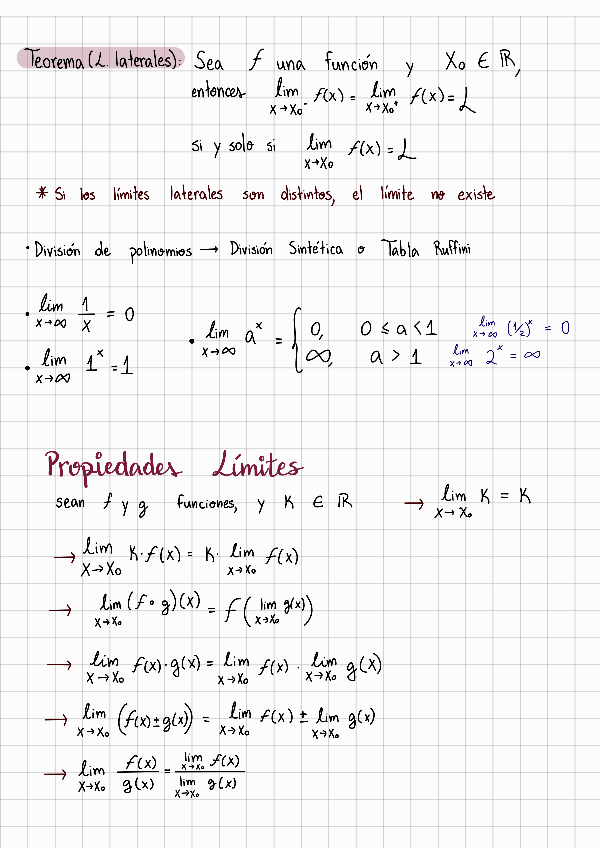 Teorema (L. laterales): Sea f una función y X₀ ∈ ℝ,
entonces lim x→x₀⁻ f(x) = lim x→x₀⁺ f(x) = L
si y solo si lim x→x₀ f(x) = L
* Si los límites laterales son distintos, el límite no existe
• División de polinomios → División Sintética o Tabla Ruffini
• lim x→∞ 1/x = 0
• lim x→∞ 1ˣ = 1
• lim x→∞ aˣ = { 0, 0 ≤ a < 1 lim x→∞ (1/2)ˣ = 0
∞, a > 1 lim x→∞ 2ˣ = ∞
Propiedades Límites
sean f y g funciones, y K ∈ ℝ → lim x→x₀ K = K
→ lim x→x₀ K·f(x) = K· lim x→x₀ f(x)
→ lim x→x₀ (f∘g)(x) = f(lim x→x₀ g(x))
→ lim x→x₀ f(x)·g(x) = lim x→x₀ f(x) · lim x→x₀ g(x)
→ lim x→x₀ (f(x)±g(x)) = lim x→x₀ f(x) ± lim x→x₀ g(x)
→ lim x→x₀ f(x)/g(x) = lim x→x₀ f(x) / lim x→x₀ g(x)